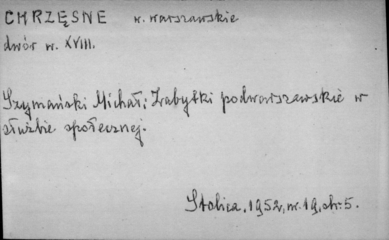 CHRZĘSNE w. warszawskie
dwór w. XVIII.
Szymański Michał: Zabytki podwarszawskie w
służbie społecznej.
Stolica, 1952, nr. 19, str. 5.